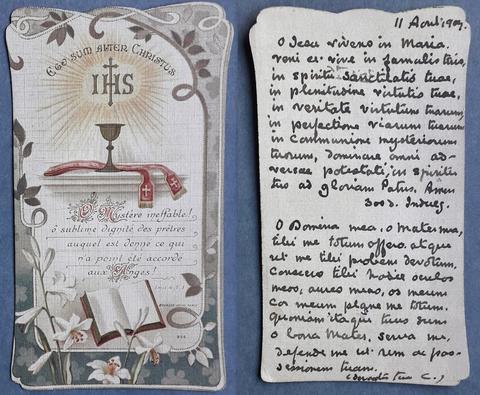 EGO SUM ALTER CHRISTUS
IHS
O Mystère ineffable!
ô sublime dignité des prêtres
auquel est donné ce qui
n'a point été accordé
aux Anges!
11 Avril 1909.
O Jesu vivens in Maria,
veni et vive in famulis tuis,
in spiritu sanctitatis tuae,
in plenitudine virtutis tuae,
in veritate virtutum tuarum,
in perfectione viarum tuarum
in communione mysteriorum
tuorum, dominare omni ad-
versae potestati, in spiritu
tuo ad gloriam Patris. Amen
300 d. Indulg.
O Domina mea, o Mater mea,
tibi me totum offero, atque
ut me tibi probem devotum,
Consecro tibi hodie oculos
meos, aures meas, os meum
cor meum plane me totum.
Quoniam itaque tuus sum
o bona Mater, serva me,
defende me ut rem ac pos-
sessionem tuam.